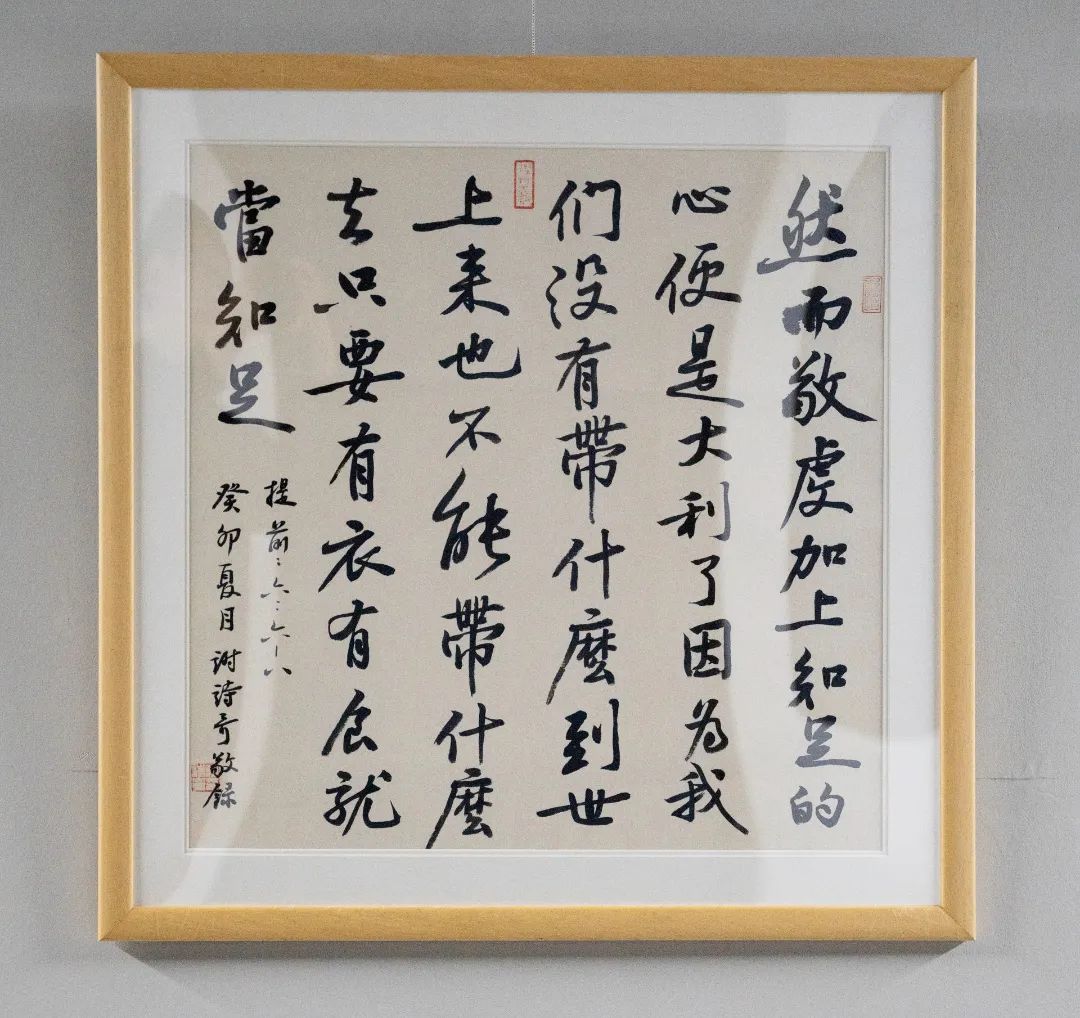 然而敬虔加上知足的
心便是大利了因为我
们没有帶什麼到世
上来也不能帶什麼
去只要有衣有食就
當知足
提前：六：六-八
癸卯夏月谢诗奇敬録